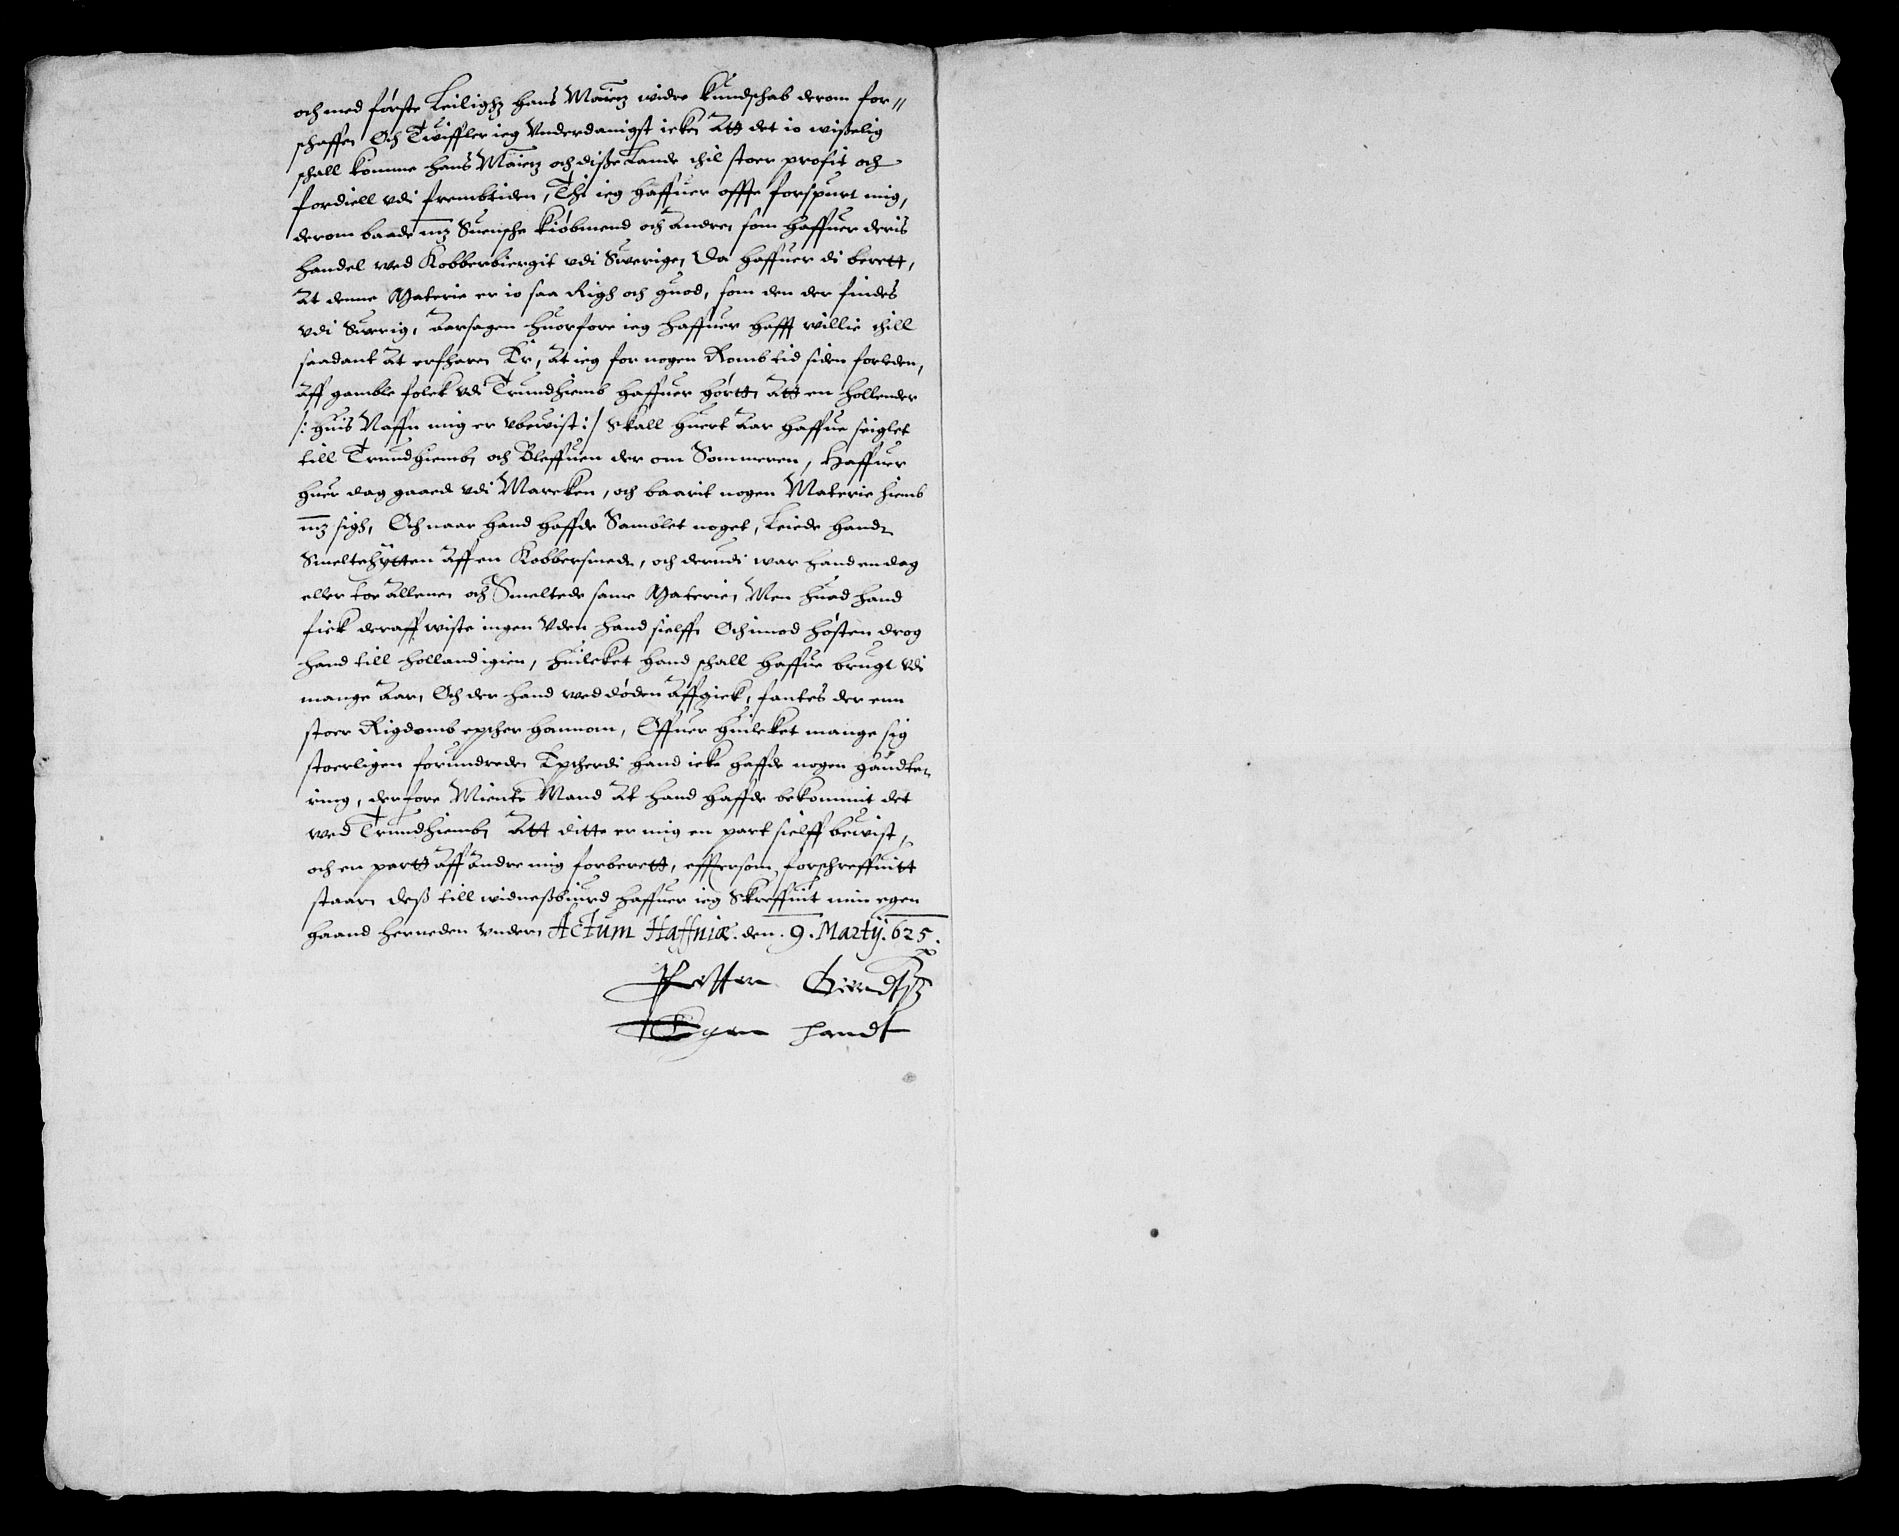 och med første Leilighz hans Maietz widre kundschab derom for//
schaffe, Och Twiffler ieg Vnderdanigst icke, Att det io wisselig
schall komme hans Maietz och disse Lande thil stoer profit och
fordiell vdi frembtiden, Thi ieg haffuer offte forspurt mig,
derom baade mz Suensche kiøbmend och Andre, som haffuer deris
handel wed Kobberbiergit vdi Swerige, Da haffuer di berett,
At denne Materie er io saa Righ och guod, som den der findes
vdi Swerrig, Aarsagen huorfore ieg haffuer hafft willie thill
saadant At erfhare, Er, At ieg for nogen Romb tid siden forleden,
Aff gamble folck vdi Trundhiemb haffuer hørtt, Att en Hollender
/: huis Naffn mig er vbewist :/ Skall huert Aar haffue seiglet
till Trundhiemb, och Bleffuen der om Sommeren, Haffuer
huer dag gaaed vdi Marcken, och baarit nogen Materie hiemb
mz sigh, Och naar hand haffde Samblet noget, Leiede hand
Smeltehytten Aff en Kobbersmed, och derudi war hand en dag
eller toe Allene, och Smeltede same Materie, Men huad hand
fick deraff wiste ingen Vden hand sielff, Och imod høsten drog
hand till Holland igien, huilcket hand schall haffue brugt Vdi
mange Aar, Och der hand wed døden Affgick, fantes der enn
stoer Rigdomb epther hannom, Offuer huilcket mange sig
stoerligen forundrede, Epthterdi hand icke haffde nogen handte-
ring, derfore Miente Mand At hand haffde bekommit det
wed Trundhiemb, Att ditte er mig en part sielff bewist,
och en partt Aff Andre mig forberett, effterson forschreffuitt
staar, dess till widnessbiurd haffuer ieg Skreffuit min egen
haand herneden vnder, Actum Haffniæ. den. 9. Martij. 625.
Petter
Egen handt